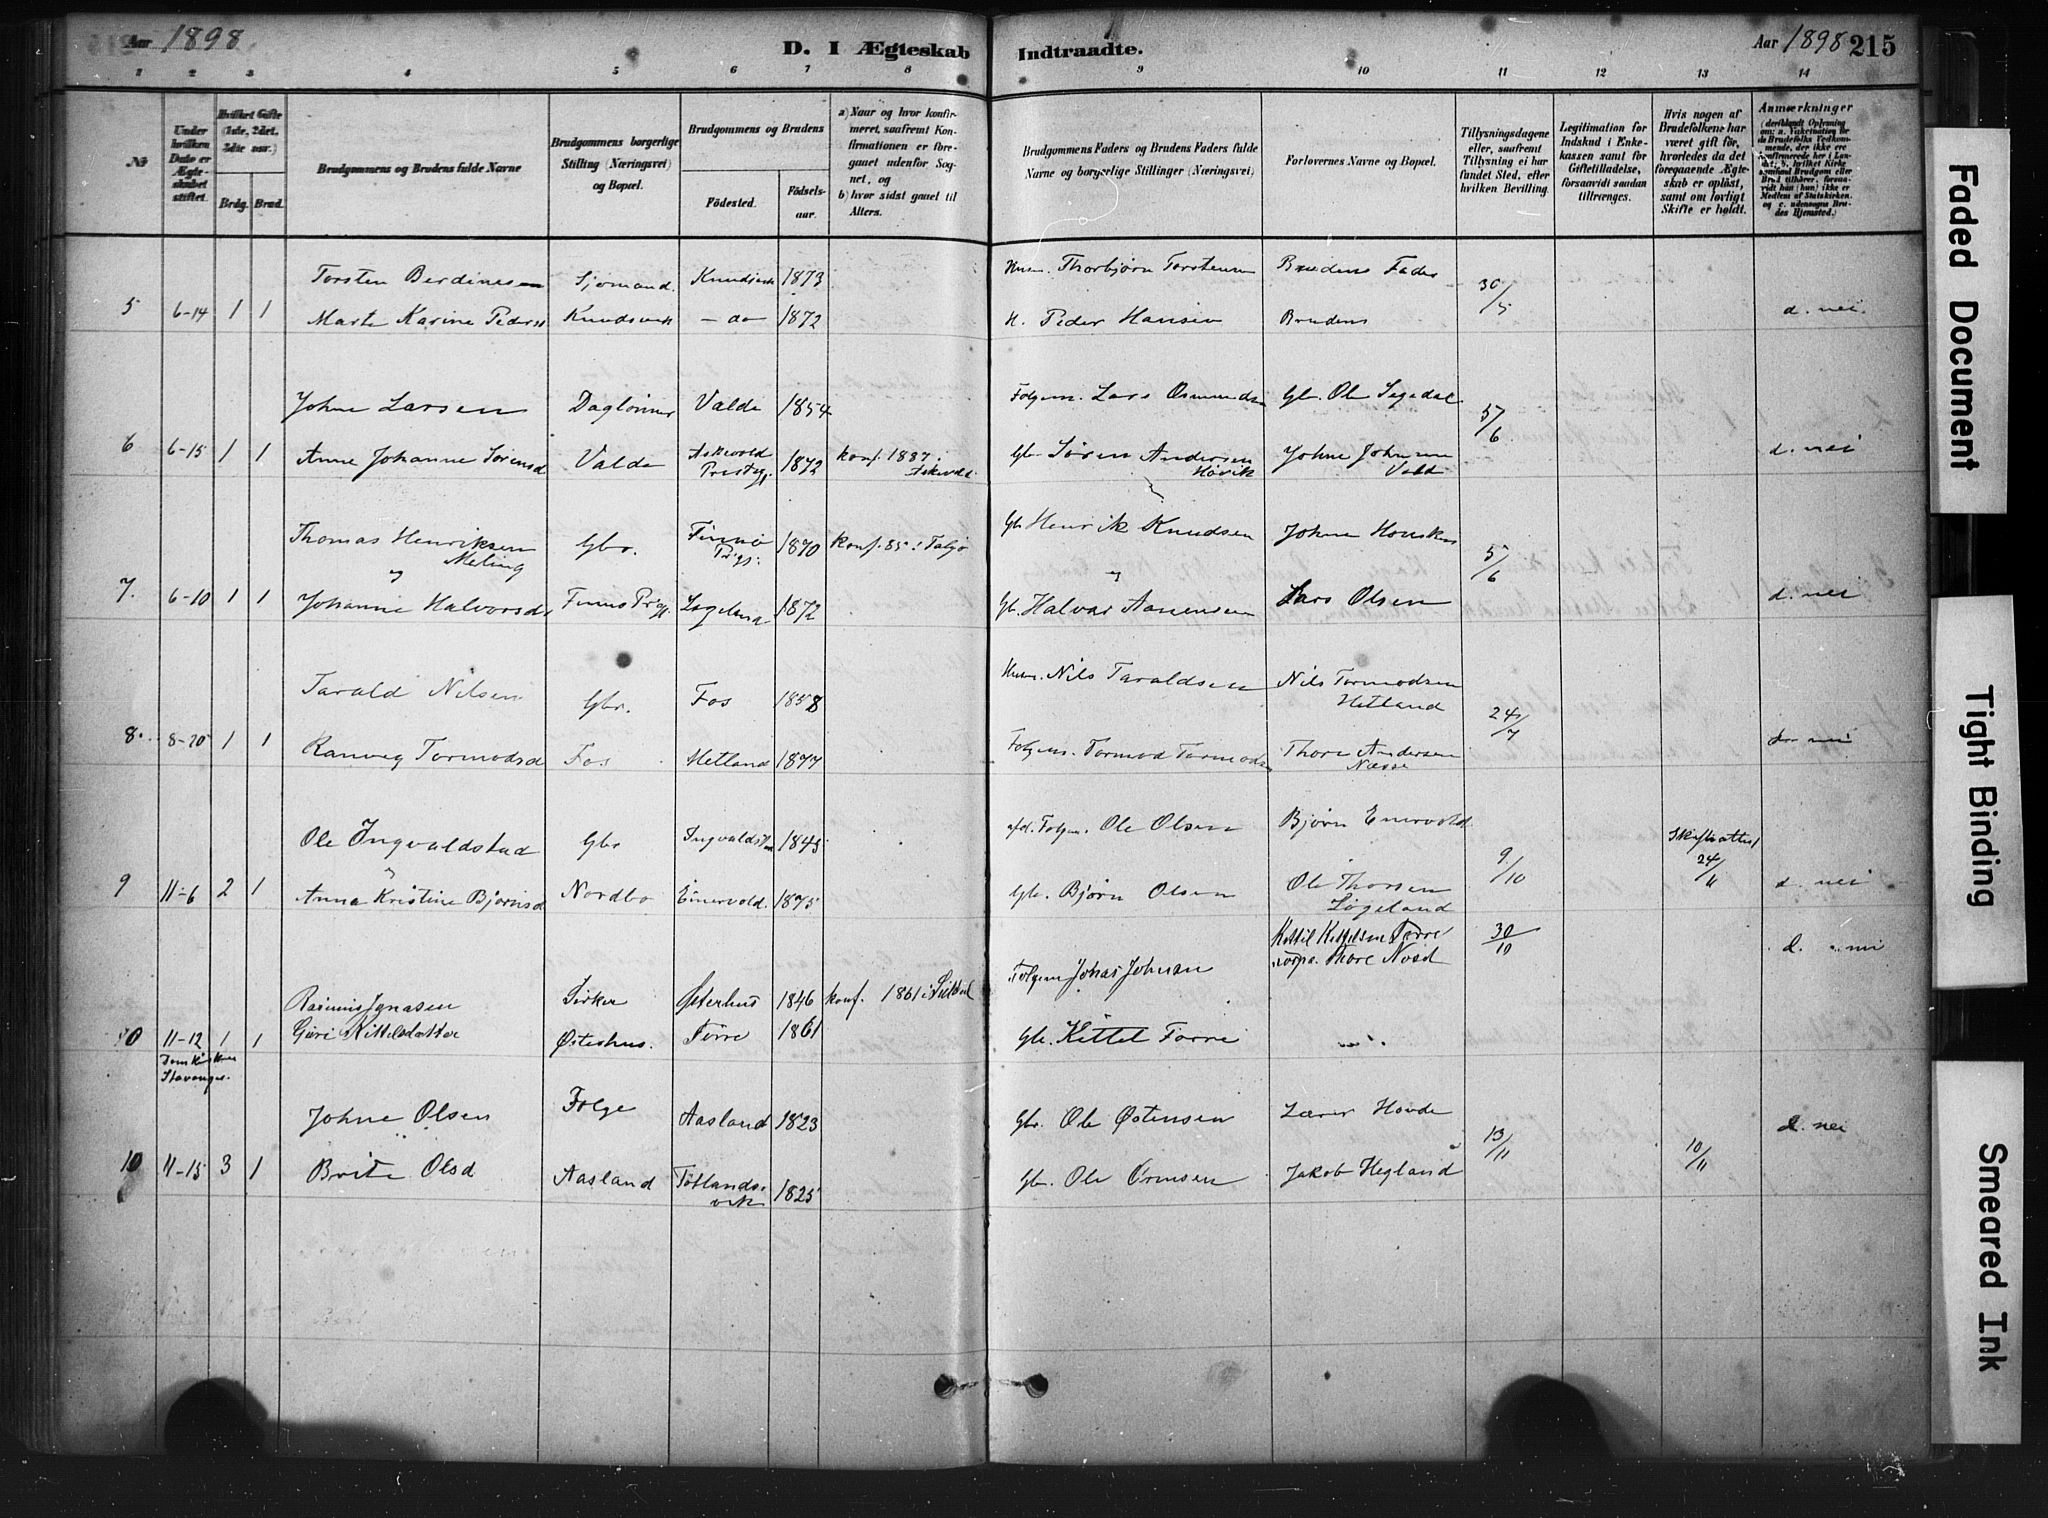 Aar 1898.
D. I Ægteskab Indtraadte.
Aar 1898 215
1 2 3 4 5 6 7 8 9 10 11 12 13 14
No
Under hvilken Dato er Ægteskabet stiftet.
Hvilket Gifte (1ste, 2det, 3die osv.)
Brdg. Brud.
Brudgommens og Brudens fulde Navne
Brudgommens borgerlige Stilling (Næringsvei) og Bopæl.
Brudgommens og Brudens
Födested. Födselsaar.
a) Naar og hvor konfirmeret, saafremt Konfirmationen er foregaaet udenfor Sognet, og
b) hvor sidst gaaet til Alters.
Brudgommens Faders og Brudens Faders fulde Navne og borgerlige Stillinger (Næringsvei)
Forlovernes Navne og Bopæl.
Tillysningsdagene eller, saafremt Tillysning ei har fundet Sted, efter hvilken Bevilling.
Legitimation for Indskud i Enkekassen samt for Giftetilladelse, forsaavidt saadan tiltrænges.
Hvis nogen af Brudefolkene har været gift för, hvorledes da det foregaaende Ægteskab er oplöst, samt om lovligt Skifte er holdt.
Anmærkninger
Torsten Berdinesen Sjömand. 1873 Thorbjørn Torstensen Brudens Fader 30/5
5 6-14 1 1 Marte Karine Peders Knudsvik - do 1872 Peder Hansen Brudens d. nei.
Johne Larsen Daglönner Valde 1854 Folgem. Lars Osmundsen Gbr. Ole 5/6
6 6-15 1 1 Anne Johanne Sørensd Valde Askevold Prestgj. 1872 konf. 1887 i Askevold Gbr. Søren Andersen Høvik Johne Johnsen Valde d. nei
Thomas Henriksen Meling Gbr. Finnö Prgj. 1870 konf. 85 i Gbr Henrik Knudsen Johne 5/6
og
7. 6-10 1 1 Johanne Halvorsd Finnö Prgj. 1872 Gbr. Halvor Aanensen Lars Olsen d. nei
Tarald Nilsen Gbr. Fos 1858 Nils Taraldsen Nils Tormodsen Hetland 24/7
8. 8-20 1 1 Ranveg Tormodsd Fos Hetland 1877 Folgem. Tormod Tormodsen Thore Andersen Næsse nei
Ole Ingvaldstad Gbr Ingvaldstad 1845 afd. Folgem. Ole Olsen Bjørn Enervold 9/10 24/11
9 11-6 2 1 Anna Kristine Bjørnsd Nordbo Enervold. 1875 Gbr. Bjørn Olsen Ole Thorsen Løgeland d. nei
Kittil Kittilsen Førre Thore Nord 30/10 d. nei
Rasmus Jonasen Østerhus 1846 konf. 1861 i Folgem Jonas Johnsen
10 11-12 1 1 Guri Kittelsdatter Østerhus. Førre 1861 Gbr. Kittel Førre
Domkirken Stavanger.
Johne Olsen Folge Aasland 1823 Gbr. Ole Østensen Lærer Hovde 13/11 10/11 d. nei
10 11-15 3 1 Brite Olsd Aasland Tøtlandsvik 1825 Gbr. Ole Ormsen Jakob Hegland
Faded Document
Tight Binding
Smeared Ink